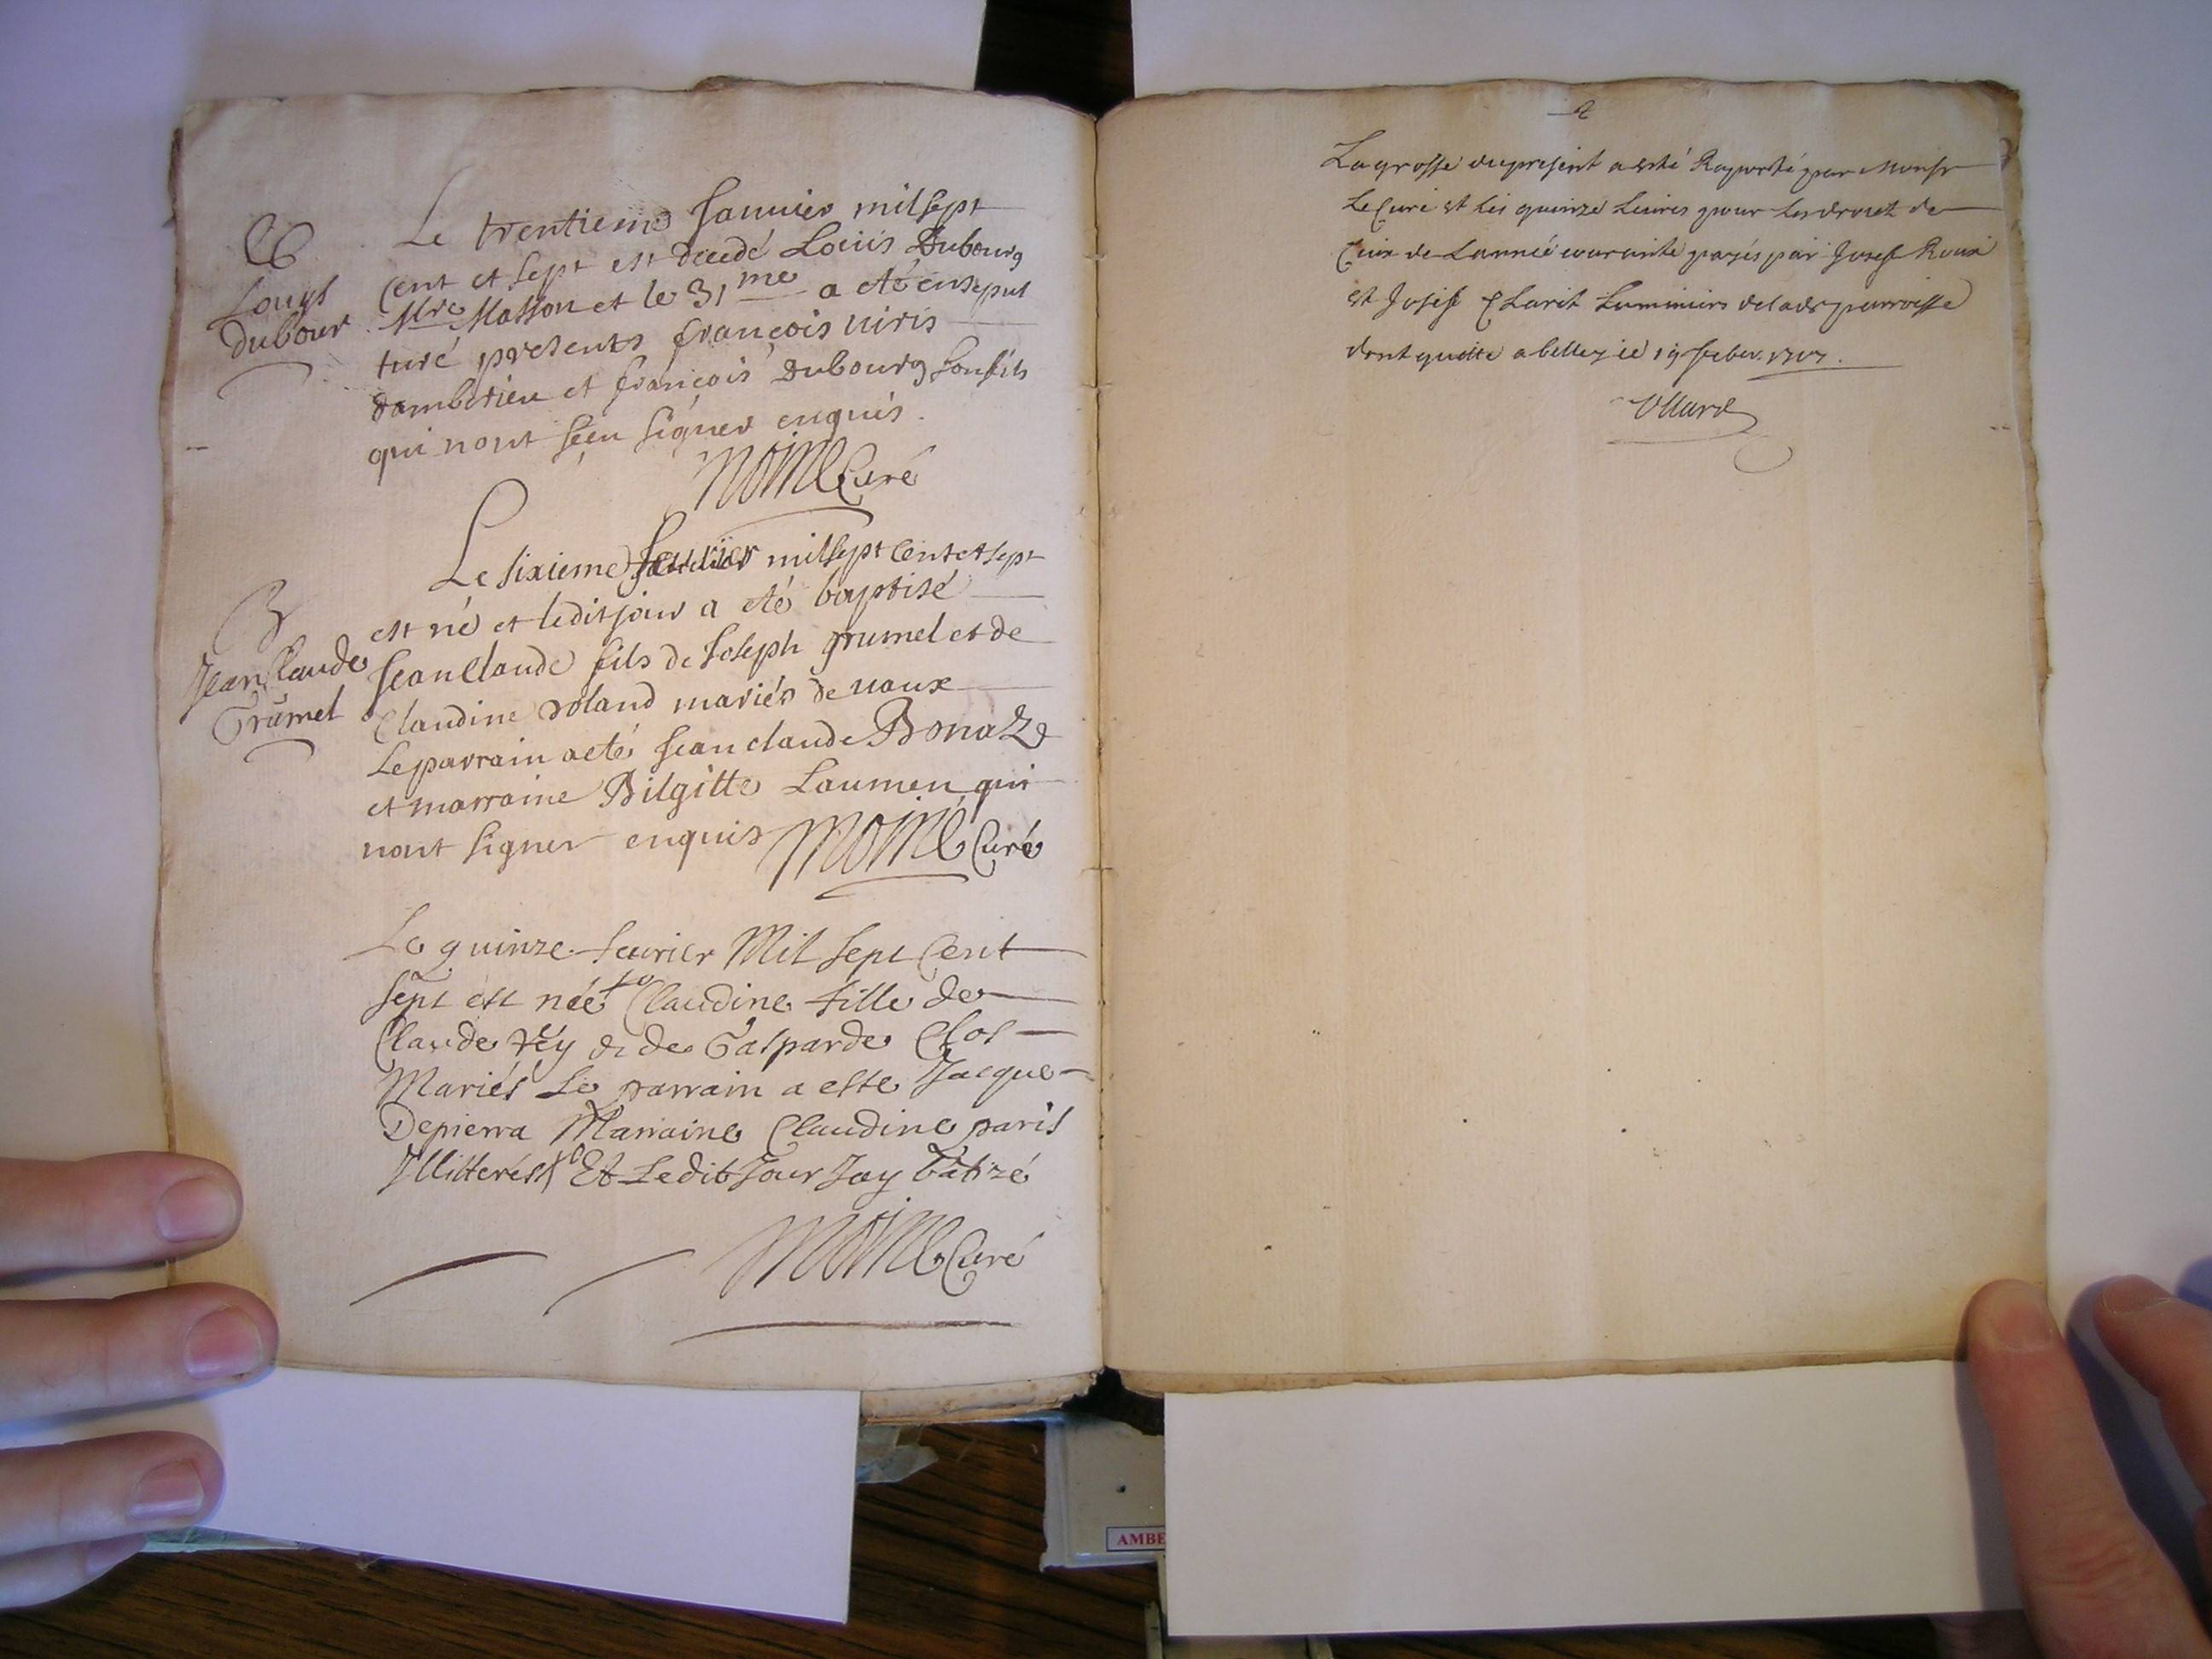 Louys
Dubour
Le trentieme Januier mil sept
Cent et sept est decedé Louis Dubourg
Mre Masson et le 31me a eté ensepul
turé presents françois niris
dambérieu et françois Dubourg son fils
qui nont sçeu signer enquis.
Moine Curé
Jean Claude
Grumel
Le sixieme feurier mil sept Cent et sept
est né et ledit jour a eté baptisé
Jean Claude fils de Joseph grumel et de
Claudine roland mariés de uaux
Le parrain a eté Jean claude Bonaz
et marraine Bilgitte Laumen qui
nont signer enquis Moine Curé
Le quinze feurier Mil sept Cent
sept est née Claudine fille de
Claude rey & de Gasparde Clos
Mariés Le parrain a esté Jacque
Depierra Marraine Claudine paris
Illitterés Et Ledit Jour Jay batizé
Moine Curé
2
La grosse du present a esté Raporté par Monsr
Le Curé et les quinze Liures pour les droict de
Ceux de Lannée courante payés par Josef Roux
et Josef Clarit Luminiers de lad parroisse
dont quitte a belley ce 19 feber. 1707.
Ullard
AMBE